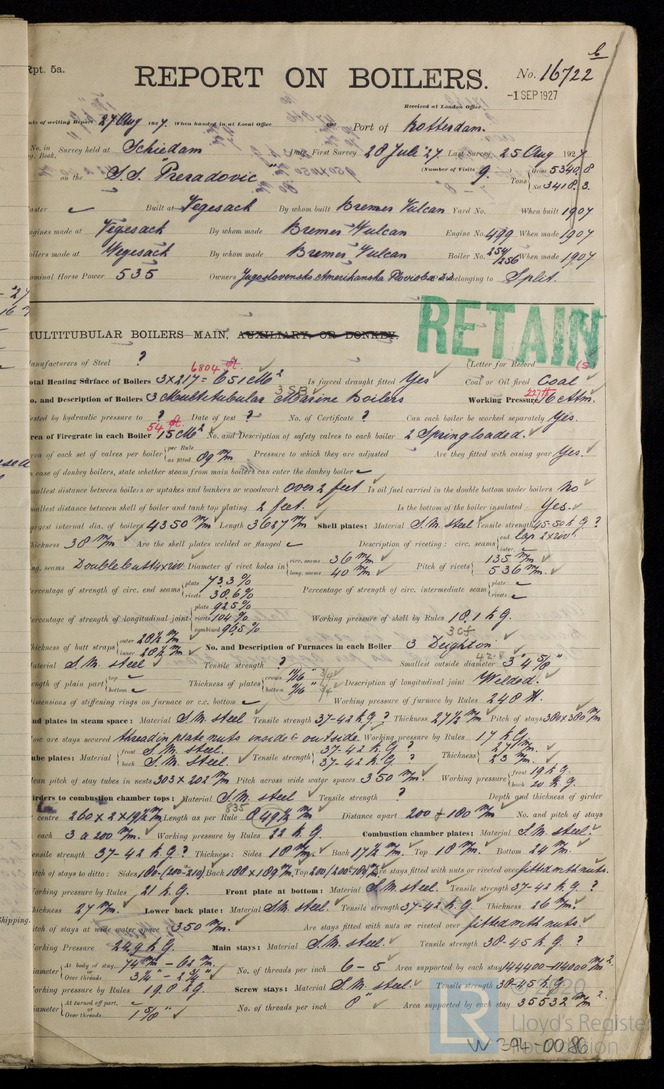 Rpt. 5a.
REPORT ON BOILERS.
No. 16722
-1 SEP 1927
Received at London Office
Date of writing Report 27 Aug 1927. When handed in at Local Office Port of Rotterdam.
No. in Reg. Book. Survey held at Schiedam Date, First Survey 28 July '27 Last Survey 25 Aug 1927
(Number of Visits 9.
on the S.S. "Preradovic" Tons Gross 5340.8
Net 3418.3
Master Built at Vegesack By whom built Bremer Vulcan Yard No. When built 1907
Engines made at Vegesack By whom made Bremer Vulcan Engine No. 499 When made 1907
Boilers made at Vegesack By whom made Bremer Vulcan Boiler No. 254 256 When made 1907
Nominal Horse Power 535 Owners Jugoslavensko Amerikanska Plovidba belonging to Split.
RETAIN
MULTITUBULAR BOILERS MAIN, AUXILIARY, OR DONKEY.
Manufacturers of Steel ? (Letter for Record (S
6804 ft.
Total Heating Surface of Boilers 3 x 217 = 651 M2 Is forced draught fitted Yes Coal or Oil fired Coal
3 SB
No. and Description of Boilers 3 Multitubular Marine Boilers Working Pressure 16 Atm.
Tested by hydraulic pressure to ? Date of test ? No. of Certificate ? Can each boiler be worked separately Yes.
54 ft
Area of Firegrate in each Boiler 5 M2 No. and Description of safety valves to each boiler 2 Spring loaded.
Area of each set of valves per boiler per Rule as fitted 89 m/m Pressure to which they are adjusted Are they fitted with easing gear Yes.
In case of donkey boilers, state whether steam from main boilers can enter the donkey boiler
Smallest distance between boilers or uptakes and bunkers or woodwork over 2 feet Is oil fuel carried in the double bottom under boilers No
Smallest distance between shell of boiler and tank top plating 2 feet. Is the bottom of the boiler insulated Yes.
Largest internal dia. of boilers 4350 m/m Length 3627 m/m Shell plates: Material S.M. steel Tensile strength 45-50 k.g. ?
Thickness 30 m/m. Are the shell plates welded or flanged Description of riveting: circ. seams end lap 2x riv.
long. seams Double butt 4x riv. Diameter of rivet holes in circ. seams 36 m/m long. seams 40 m/m Pitch of rivets 135 m/m 536 m/m.
Percentage of strength of circ. end seams plate 73.3% rivets 38.6% Percentage of strength of circ. intermediate seam plate rivets
Percentage of strength of longitudinal joint plate 92.5% rivets 104% combined 96.5% Working pressure of shell by Rules 18.1 k.g.
Thickness of butt straps outer 20½ m/m inner 20½ m/m No. and Description of Furnaces in each Boiler 3 Deighton
Material S.M. steel Tensile strength ? Smallest outside diameter 3' 4 5/8"
Length of plain part top bottom Thickness of plates crown 11/16" bottom 11/16" Description of longitudinal joint Welded.
Dimensions of stiffening rings on furnace or c.c. bottom Working pressure of furnace by Rules 248 #.
End plates in steam space: Material S.M. steel Tensile strength 37-42 k.g. ? Thickness 27½ m/m Pitch of stays 380x380 m/m
How are stays secured thread in plate nuts inside & outside. Working pressure by Rules 17 k.g.
Tube plates: Material front S.M. steel. back S.M. steel. Tensile strength 37-42 k.g. ? 37-42 k.g. ? Thickness 27 m/m. 23 m/m.
Mean pitch of stay tubes in nests 303 x 202 m/m Pitch across wide water spaces 350 m/m. Working pressure front 19 k.g. back 20 k.g.
Girders to combustion chamber tops: Material S.M. steel Tensile strength ? Depth and thickness of girder
at centre 260 x 2 x 19½ m/m Length as per Rule 835 849½ m/m Distance apart 200 & 180 m/m No. and pitch of stays
in each 3 a 200 m/m. Working pressure by Rules 22 k.g. Combustion chamber plates: Material S.M. steel.
Tensile strength 37-42 k.g. ? Thickness: Sides 18 m/m. Back 17½ m/m Top 18 m/m. Bottom 24 m/m.
Pitch of stays to ditto: Sides 188-(200-210) Back 188 x 189 m/m Top Are stays fitted with nuts or riveted over fitted with nuts.
Working pressure by Rules 21 k.g. Front plate at bottom: Material S.M. steel Tensile strength 37-42 k.g. ?
Thickness 27 m/m. Lower back plate: Material S.M. steel. Tensile strength 37-42 k.g. Thickness 26 m/m.
Pitch of stays at wide water space 350 m/m. Are stays fitted with nuts or riveted over fitted with nuts.
Working Pressure 24.9 k.g. Main stays: Material S.M. steel. Tensile strength 38-45 k.g. ?
Diameter At body of stay, 74 m/m - 62 m/m or Over threads 3¼" - 2¾" No. of threads per inch 6-5 Area supported by each stay 144400-114000 m/m2.
Working pressure by Rules 19.8 k.g. Screw stays: Material S.M. steel. Tensile strength 38-45 k.g.
Diameter At turned off part, or Over threads 1 5/8" No. of threads per inch 8" Area supported by each stay 35532 m/m2.
LR Lloyd's Register Foundation
W394-0086